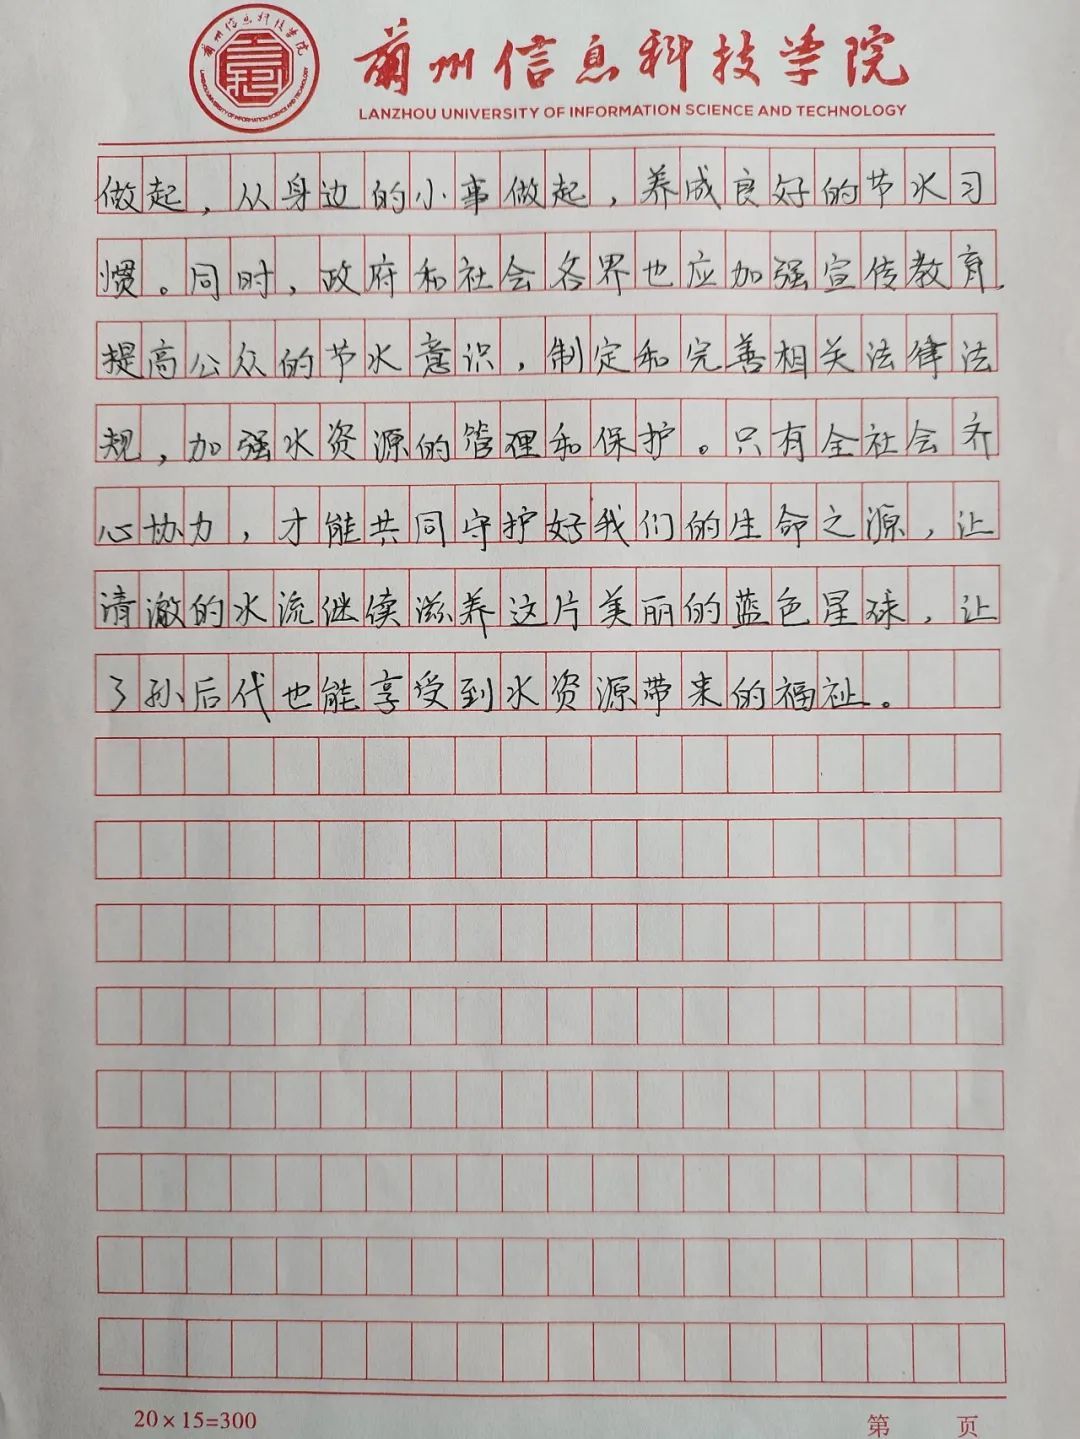 兰州信息科技学院
LANZHOU UNIVERSITY OF INFORMATION SCIENCE AND TECHNOLOGY
兰州信息科技学院
LANZHOU UNIVERSITY OF INFORMATION SCIENCE AND TECHNOLOGY
做起，从身边的小事做起，养成良好的节水习
惯。同时，政府和社会各界也应加强宣传教育，
提高公众的节水意识，制定和完善相关法律法
规，加强水资源的管理和保护。只有全社会齐
心协力，才能共同守护好我们的生命之源，让
清澈的水流继续滋养这片美丽的蓝色星球，让
子孙后代也能享受到水资源带来的福祉。
20×15=300
第 页